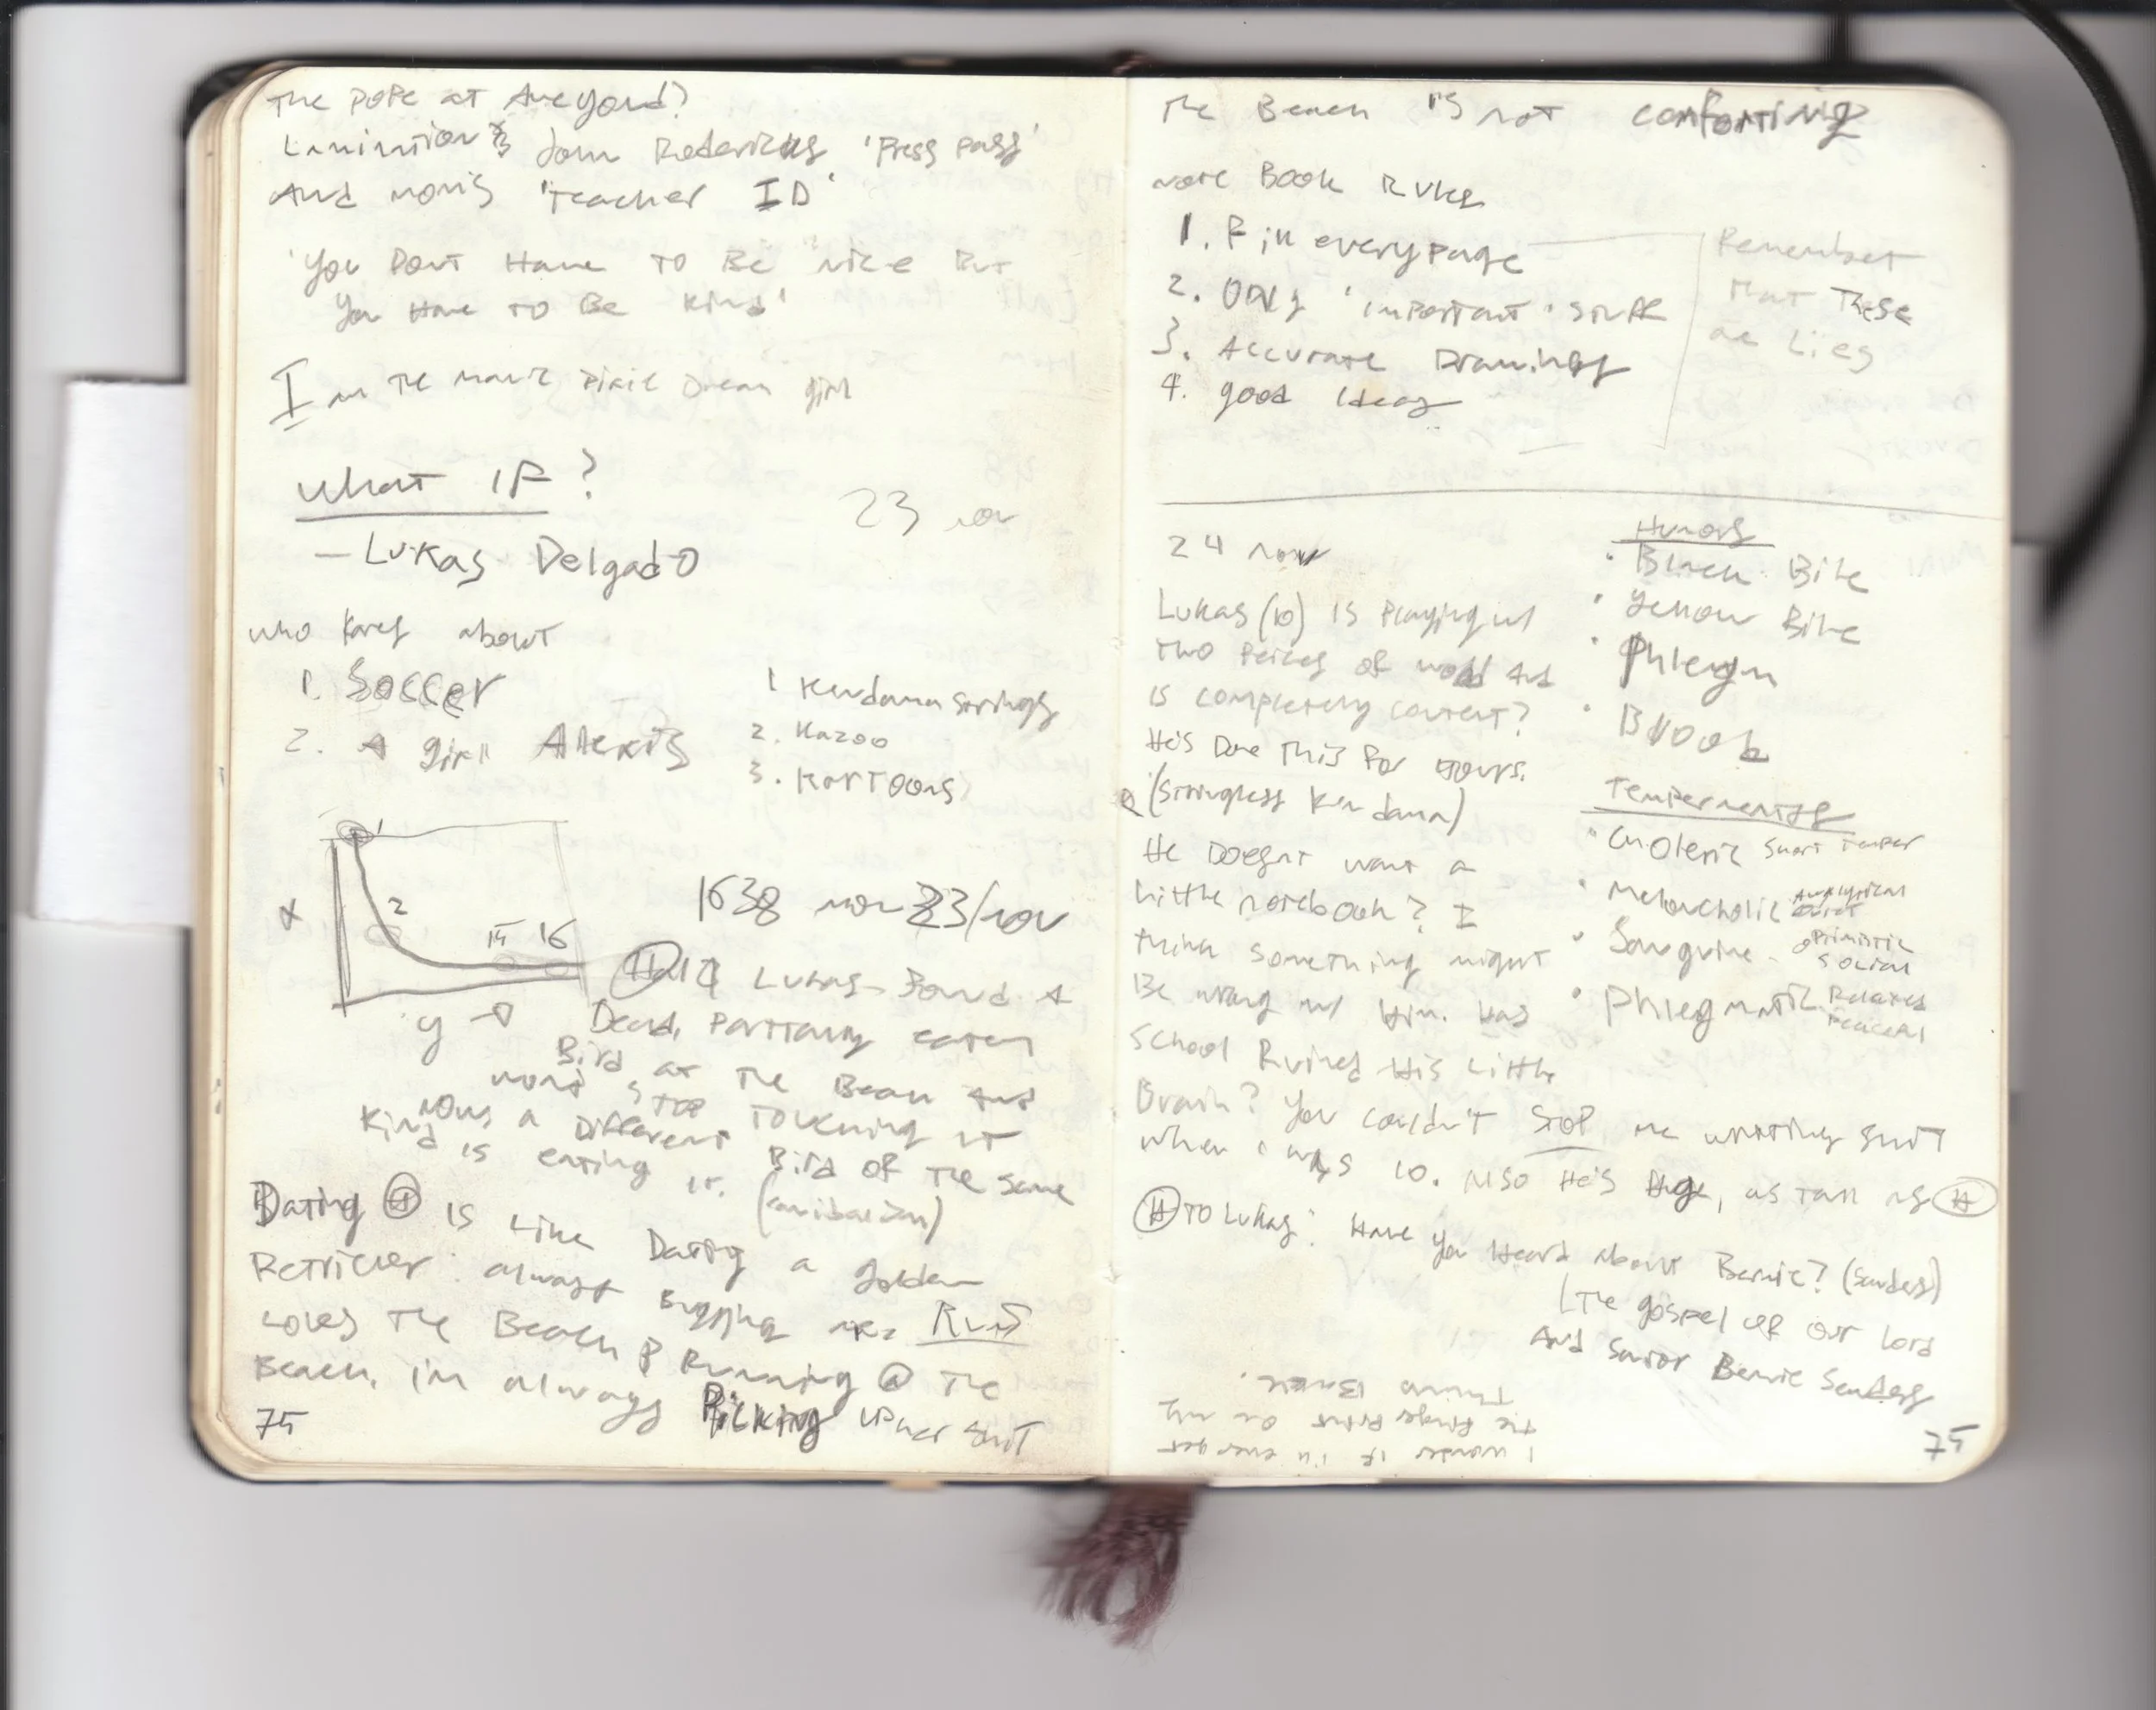 The Pope at
John Rodericks 'Press Pass'
And mom's 'Teacher ID'
'You Dont Have To Be nice But
You Have To Be Kind'
I am The manic Pixie Dream girl
What IF?
23 nov
- Lukas Delgado
who about
1. Soccer
2. A girl Alexis
1 Kendama strings
2. Kazoo
3. Kartoons
1
2
15 16
X
y →
1638 23/nov
(H) Lukas Found A
Dead, Partially eaten
Bird at The Beach And
wont stop Touching it
Now a Different Bird of The same
Kind is eating it.
Dating (H) is Like Dating a golden
Retriever: always Bugging me. Runs
Loves The Beach & Running @ The
Beach, I'm always Picking up her shit
75
The Beach is not comforting
Note Book Rules
1. Fill every page
2. Only 'important' stuff
3. Accurate Drawings
4. good Ideas
Remember
That These
are Lies
24 nov
Lukas (10) is Playing w/
two Peices of wood And
is completely content?
He's Done This For Hours.
(Stringless Kendama)
He Doesnt want a
little notebook? I
think something might
Be wrong w/ Him. Has
School Ruined His Little
Brain? You couldn't STOP me writing shit
when i was 10. Also He's Huge, as tall as (H)
Humors
• Black Bile
• Yellow Bile
• Phlegm
• Blood
Temperments
• Choleric Short Temper
• Melancholic Analytical Quiet
• Sanguine - optimistic social
• Phlegmatic Relaxed Peaceful
(H) To Lukas: Have You Heard about Bernie? (Sanders)
(The gospel of our Lord
And Savior Bernie Sanders
I wonder if i'll ever get
the finger print on my
Thumb Back.
75